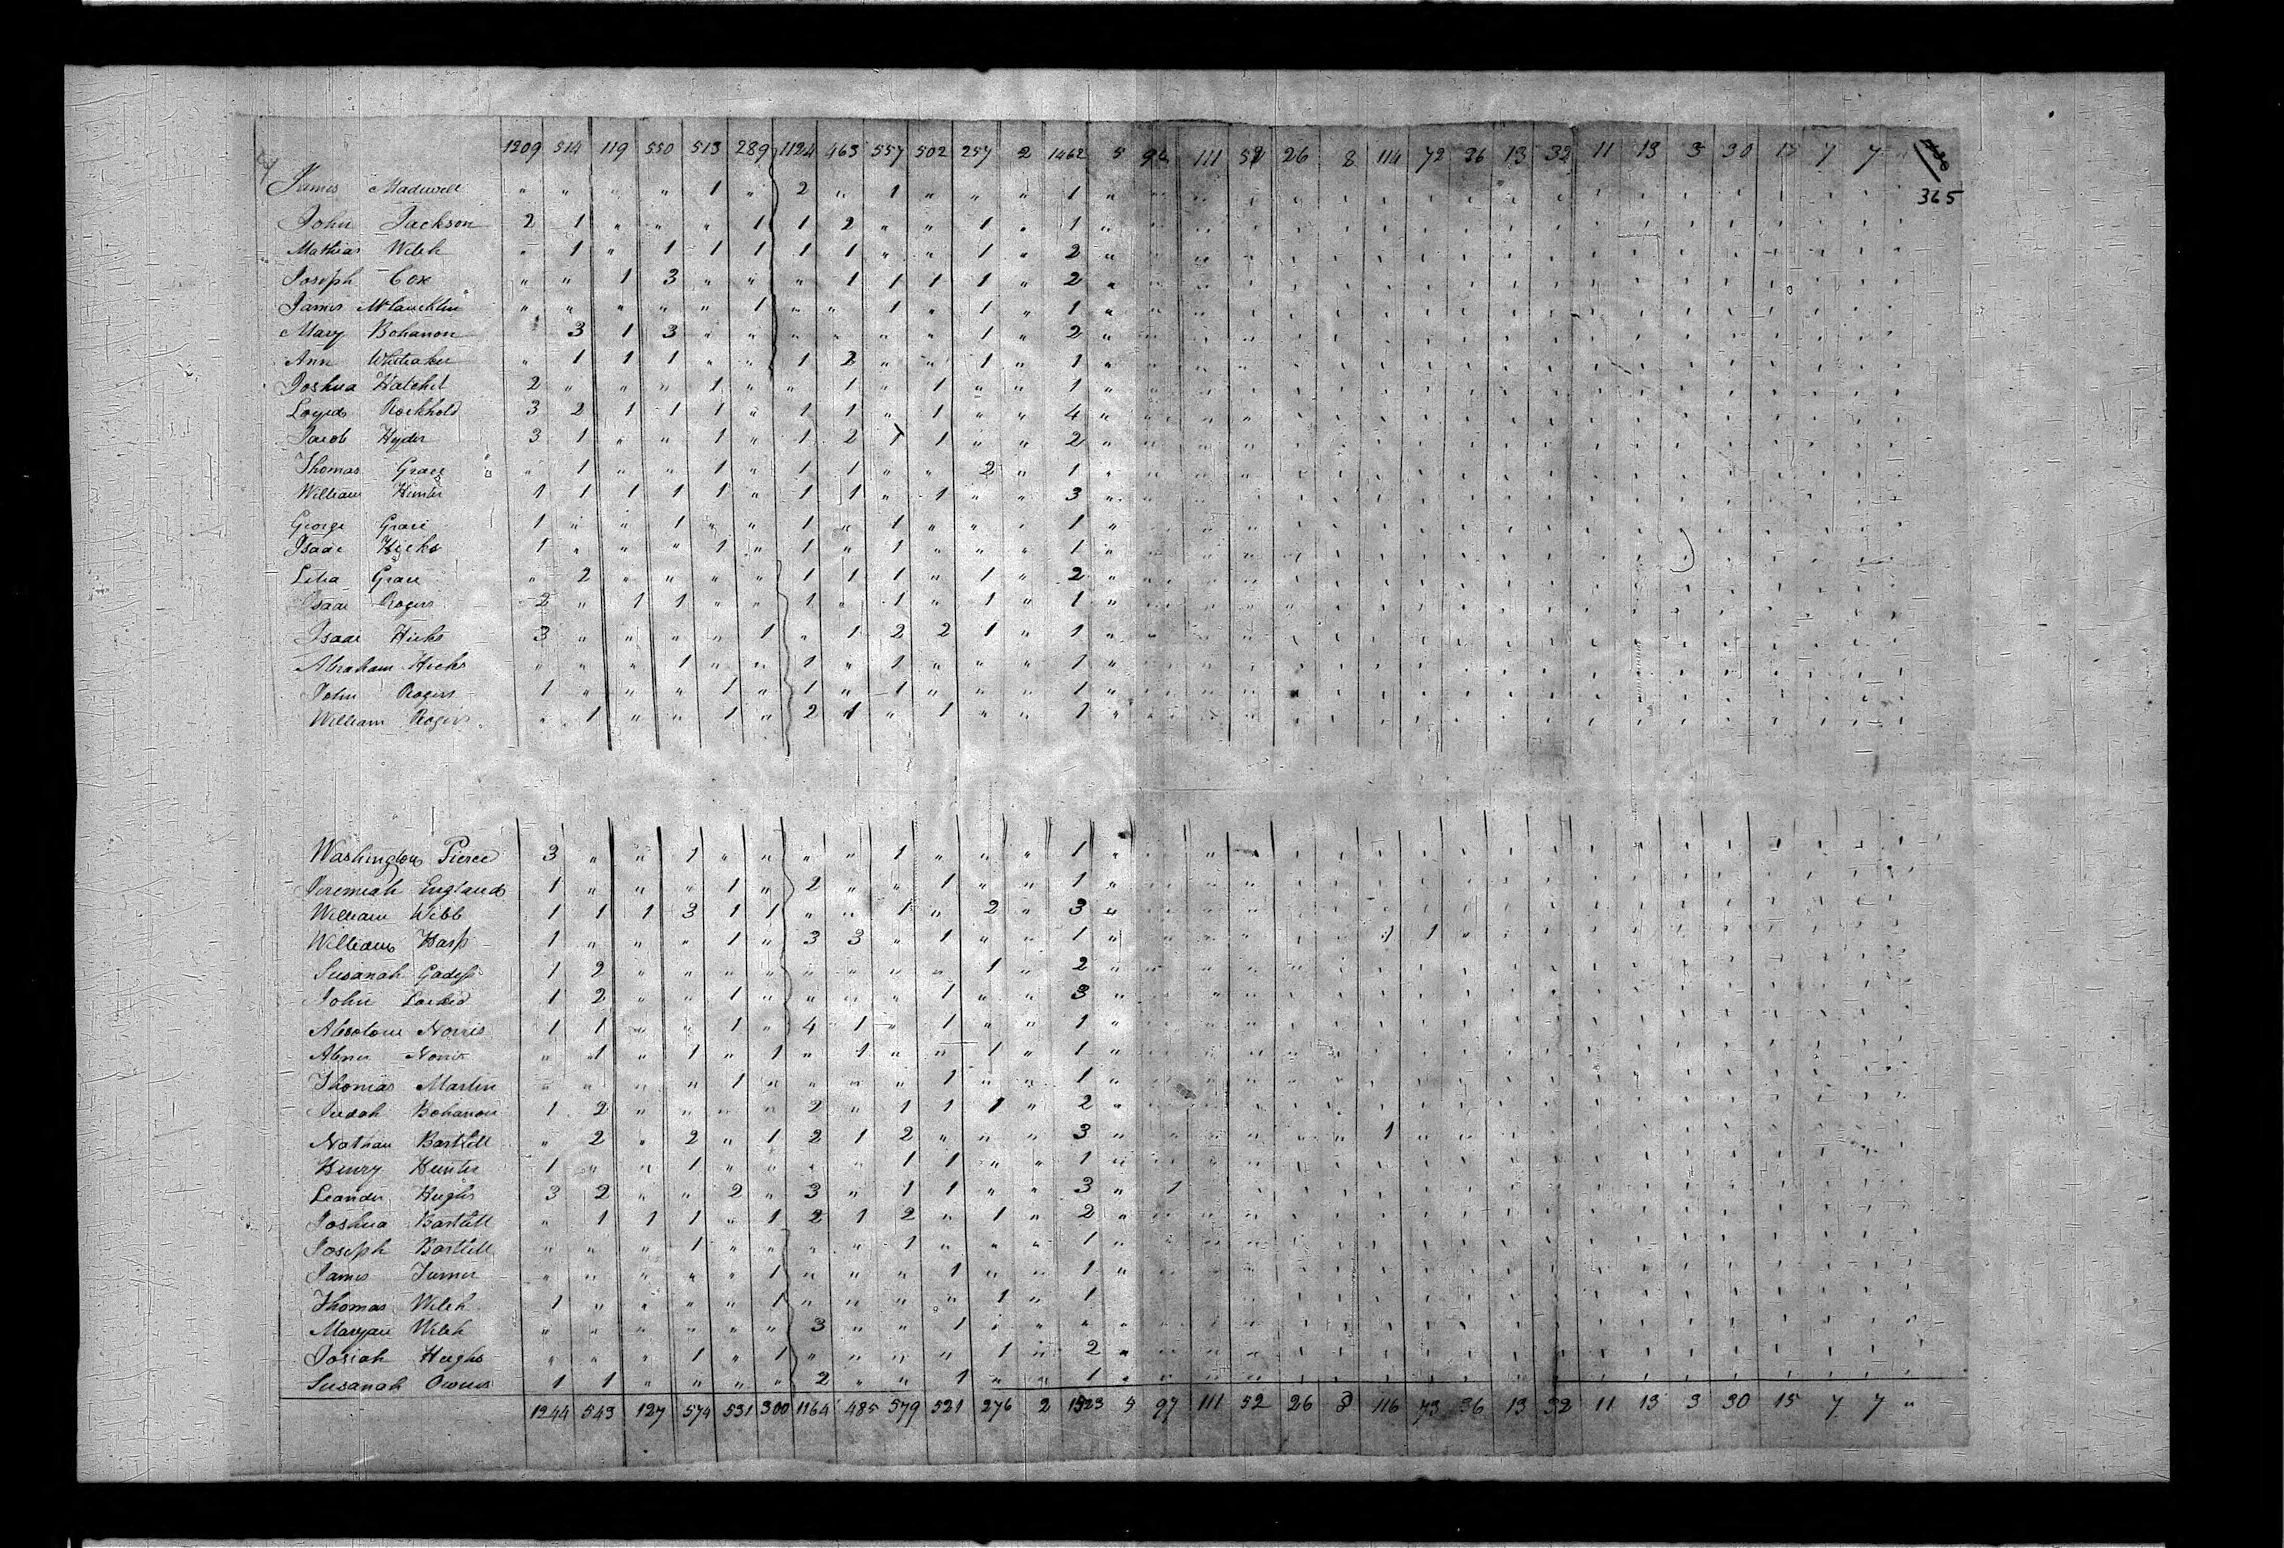 1209 514 119 550 513 289 1124 463 557 502 257 2 1462 5 96 111 52 26 8 114 72 36 13 32 11 13 3 30 15 7 7 "
365
James Maduvell " " " " 1 " 2 " 1 " " " 1 "
John Jackson 2 1 " " " 1 1 2 " " 1 " 1 "
Mathias Welch " 1 " 1 1 1 1 1 " " 1 " 2 "
Joseph Cox " " 1 3 " " " 1 1 1 1 " 2 "
James McLaucklin " " " " " 1 " " 1 " 1 " 1 "
Mary Bohanon " 3 1 3 " " " " " " 1 " 2 "
Ann Whitiaker " 1 1 1 " " 1 2 " " 1 " 1 "
Joshua Hatchet 2 " " " 1 " " 1 " 1 " " 1 "
Loyed Rockhold 3 2 1 1 1 " 1 1 " 1 " " 4 "
Jacob Hyder 3 1 " " 1 " 1 2 1 1 " " 2 "
Thomas Grace " 1 " " 1 " 1 1 " " 2 " 1 "
William Hunter 1 1 1 1 1 " 1 1 " 1 " " 3 "
George Grace 1 " " 1 " " 1 " 1 " " " 1 "
Isaac Hicks 1 " " " 1 " 1 " 1 " " " 1 "
Letia Grace " 2 " " " " 1 1 1 " 1 " 2 "
Isaac Rogers 2 " 1 1 " " 1 " 1 " 1 " 1 "
Isaac Hicks 3 " " " " 1 " 1 2 2 1 " 1 "
Abraham Hicks " " " 1 " " 1 " 1 " " " 1 "
John Rogers 1 " " " 1 " 1 " 1 " " " 1 "
William Rogers " 1 " " 1 " 2 1 " 1 " " 1 "
Washington Pierce 3 " " 1 " " " " 1 " " " 1 "
Jeremiah England 1 " " " 1 " 2 " " 1 " " 1 "
William Webb 1 1 1 3 1 1 " " 1 " 2 " 3 "
William Harp 1 " " " 1 " 3 3 " 1 " " 1 " 1 1 "
Susanah 1 2 " " " " " " " " 1 " 2 "
John 1 2 " " 1 " " " " 1 " " 3 "
Absolom Norris 1 1 " " 1 " 4 1 " 1 " " 1 "
Abner Norris " 1 " 1 " 1 " 1 " " 1 " 1 "
Thomas Martin " " " " 1 " " " " 1 " " 1 "
Judah Bohanon 1 2 " " " " 2 " 1 1 1 " 2 "
Nathan Bartlett " 2 " 2 " 1 2 1 2 " " " 3 " 1
Henry Hunter 1 " " 1 " " " " 1 1 " " 1 "
Leander Hughs 3 2 " " 2 " 3 " 1 1 " " 3 " 1
Joshua Bartlett " 1 1 1 " 1 2 1 2 " 1 " 2 "
Joseph Bartlett " " " 1 " " " " 1 " " " 1 "
James Turner " " " " " 1 " " " 1 " " 1 "
Thomas Welch 1 " " " " 1 " " " " 1 " 1
Maryan Welch " " " " " " 3 " " 1 " " " "
Josiah Hughs " " " 1 " 1 " " " " 1 " 2 "
Susanah Owens 1 1 " " " " 2 " " 1 " " 1 "
1244 543 127 574 531 300 1164 485 579 521 276 2 1523 5 97 111 52 26 8 116 73 36 13 32 11 13 3 30 15 7 7 "